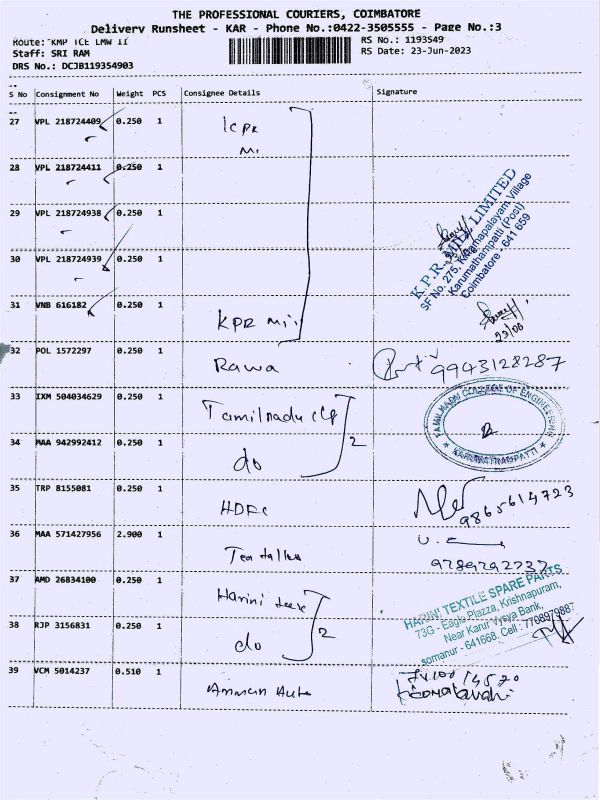 THE PROFESSIONAL COURIERS, COIMBATORE
Delivery Runsheet - KAR - Phone No.:0422-3505555 - Page No.:3
Route: KMP ICE LMW II RS No.: 1193549
Staff: SRI RAM RS Date: 23-Jun-2023
DRS No.: DCJB119354903
S No Consignment No Weight PCS Consignee Details Signature
27 VPL 218724409 0.250 1 KPR
Mi
28 VPL 218724411 0.250 1
29 VPL 218724938 0.250 1
30 VPL 218724939 0.250 1
K.P.R. MILL LIMITED
SF No. 275, Kittampalayam Village
Karumathampatti (Post)
Coimbatore - 641 659
31 VNB 616182 0.250 1 KPR Mill
23/06
32 POL 1572297 0.250 1 Rawa 9943128287
33 IXM 504034629 0.250 1 Tamilnadu clg
2
34 MAA 942992412 0.250 1 do
COLLEGE OF ENGINEERING
35 TRP 8155081 0.250 1 HDFC 9865614723
36 MAA 571427956 2.900 1
37 AMD 26834100 0.250 1 Harini
HARINI TEXTILE SPARE PARTS
73G - Eagle Plazza, Krishnapuram,
Near Karur Vysya Bank,
somanur - 641668, Cell : 7708979887
38 RJP 3156831 0.250 1 do 2
39 VCM 5014237 0.510 1 Amman Auto